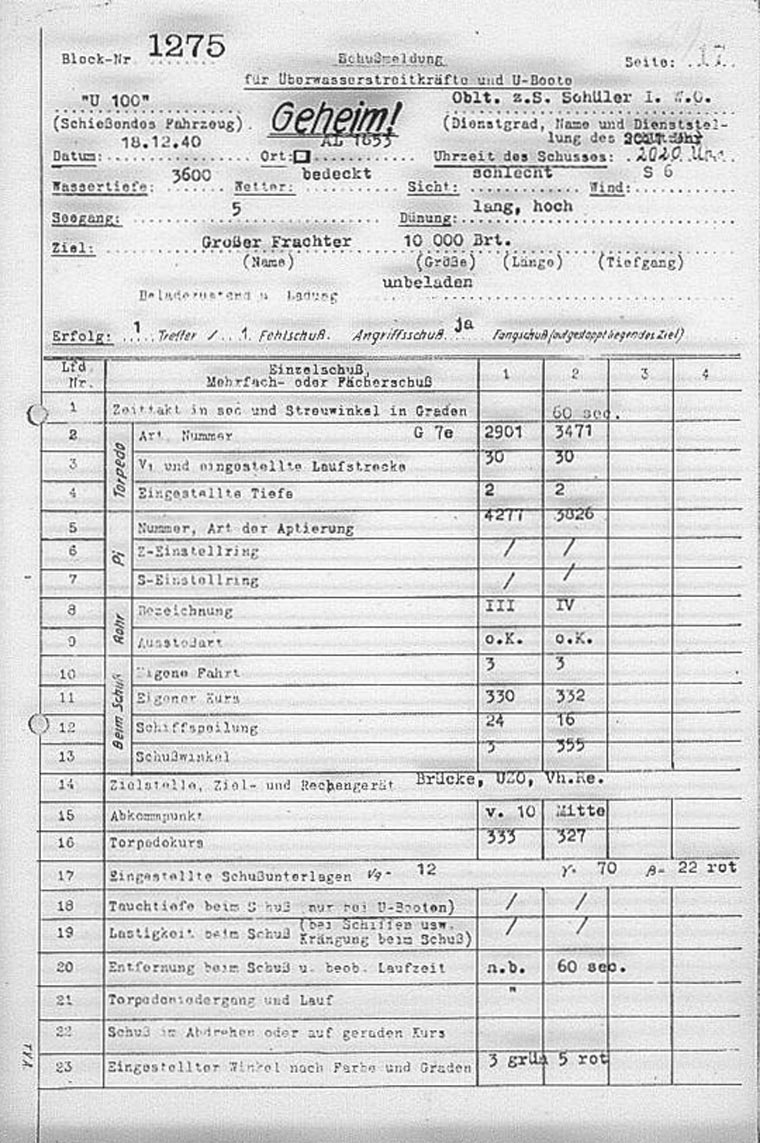 Block-Nr. 1275 Schußmeldung Seite: 17
für Überwasserstreitkräfte und U-Boote
"U 100" Geheim! Oblt. z.S. Schüler I. W.O.
(Schießendes Fahrzeug) (Dienstgrad, Name und Dienststel-
18.12.40 AL 1853 lung des
Datum: Ort: Uhrzeit des Schusses: 2020 Uhr
3600 bedeckt schlecht S 6
Wassertiefe: Wetter: Sicht: Wind:
5 lang, hoch
Seegang: Dünung:
Ziel: Großer Frachter 10 000 Brt.
(Name) (Größe) (Länge) (Tiefgang)
unbeladen
Beladezustand u. Ladung
Erfolg: 1 Treffer / 1. Fehlschuß. Angriffsschuß ja Fangschuß (auf gestoppt liegendes Ziel)
Lfd. Nr. Einzelschuß, Mehrfach- oder Fächerschuß 1 2 3 4
1 Zeittakt in sec und Streuwinkel in Graden 60 sec.
Torpedo
2 Art, Nummer G 7e 2901 3471
3 Vt und eingestellte Laufstrecke 30 30
4 Eingestellte Tiefe 2 2
Pi
5 Nummer, Art der Aptierung 4277 3826
6 Z-Einstellring / /
7 S-Einstellring / /
Rohr
8 Bezeichnung III IV
9 Ausstoßart o.K. o.K.
Beim Schuß
10 Eigene Fahrt 3 3
11 Eigener Kurs 330 332
12 Schiffspeilung 24 16
13 Schußwinkel 3 355
14 Zielstelle, Ziel- und Rechengerät Brücke, UZO, Vh.Re.
15 Abkommpunkt v. 10 Mitte
16 Torpedokurs 333 327
17 Eingestellte Schußunterlagen Vg- 12 γ- 70 β- 22 rot
18 Tauchtiefe beim Schuß (nur bei U-Booten) / /
19 Lastigkeit beim Schuß (bei Schiffen usw. Krängung beim Schuß) / /
20 Entfernung beim Schuß u. beob. Laufzeit n.b. 60 sec.
21 Torpedoniedergang und Lauf "
22 Schuß im Abdrehen oder auf geraden Kurs
23 Eingestellter Winkel nach Farbe und Graden 3 grün 5 rot